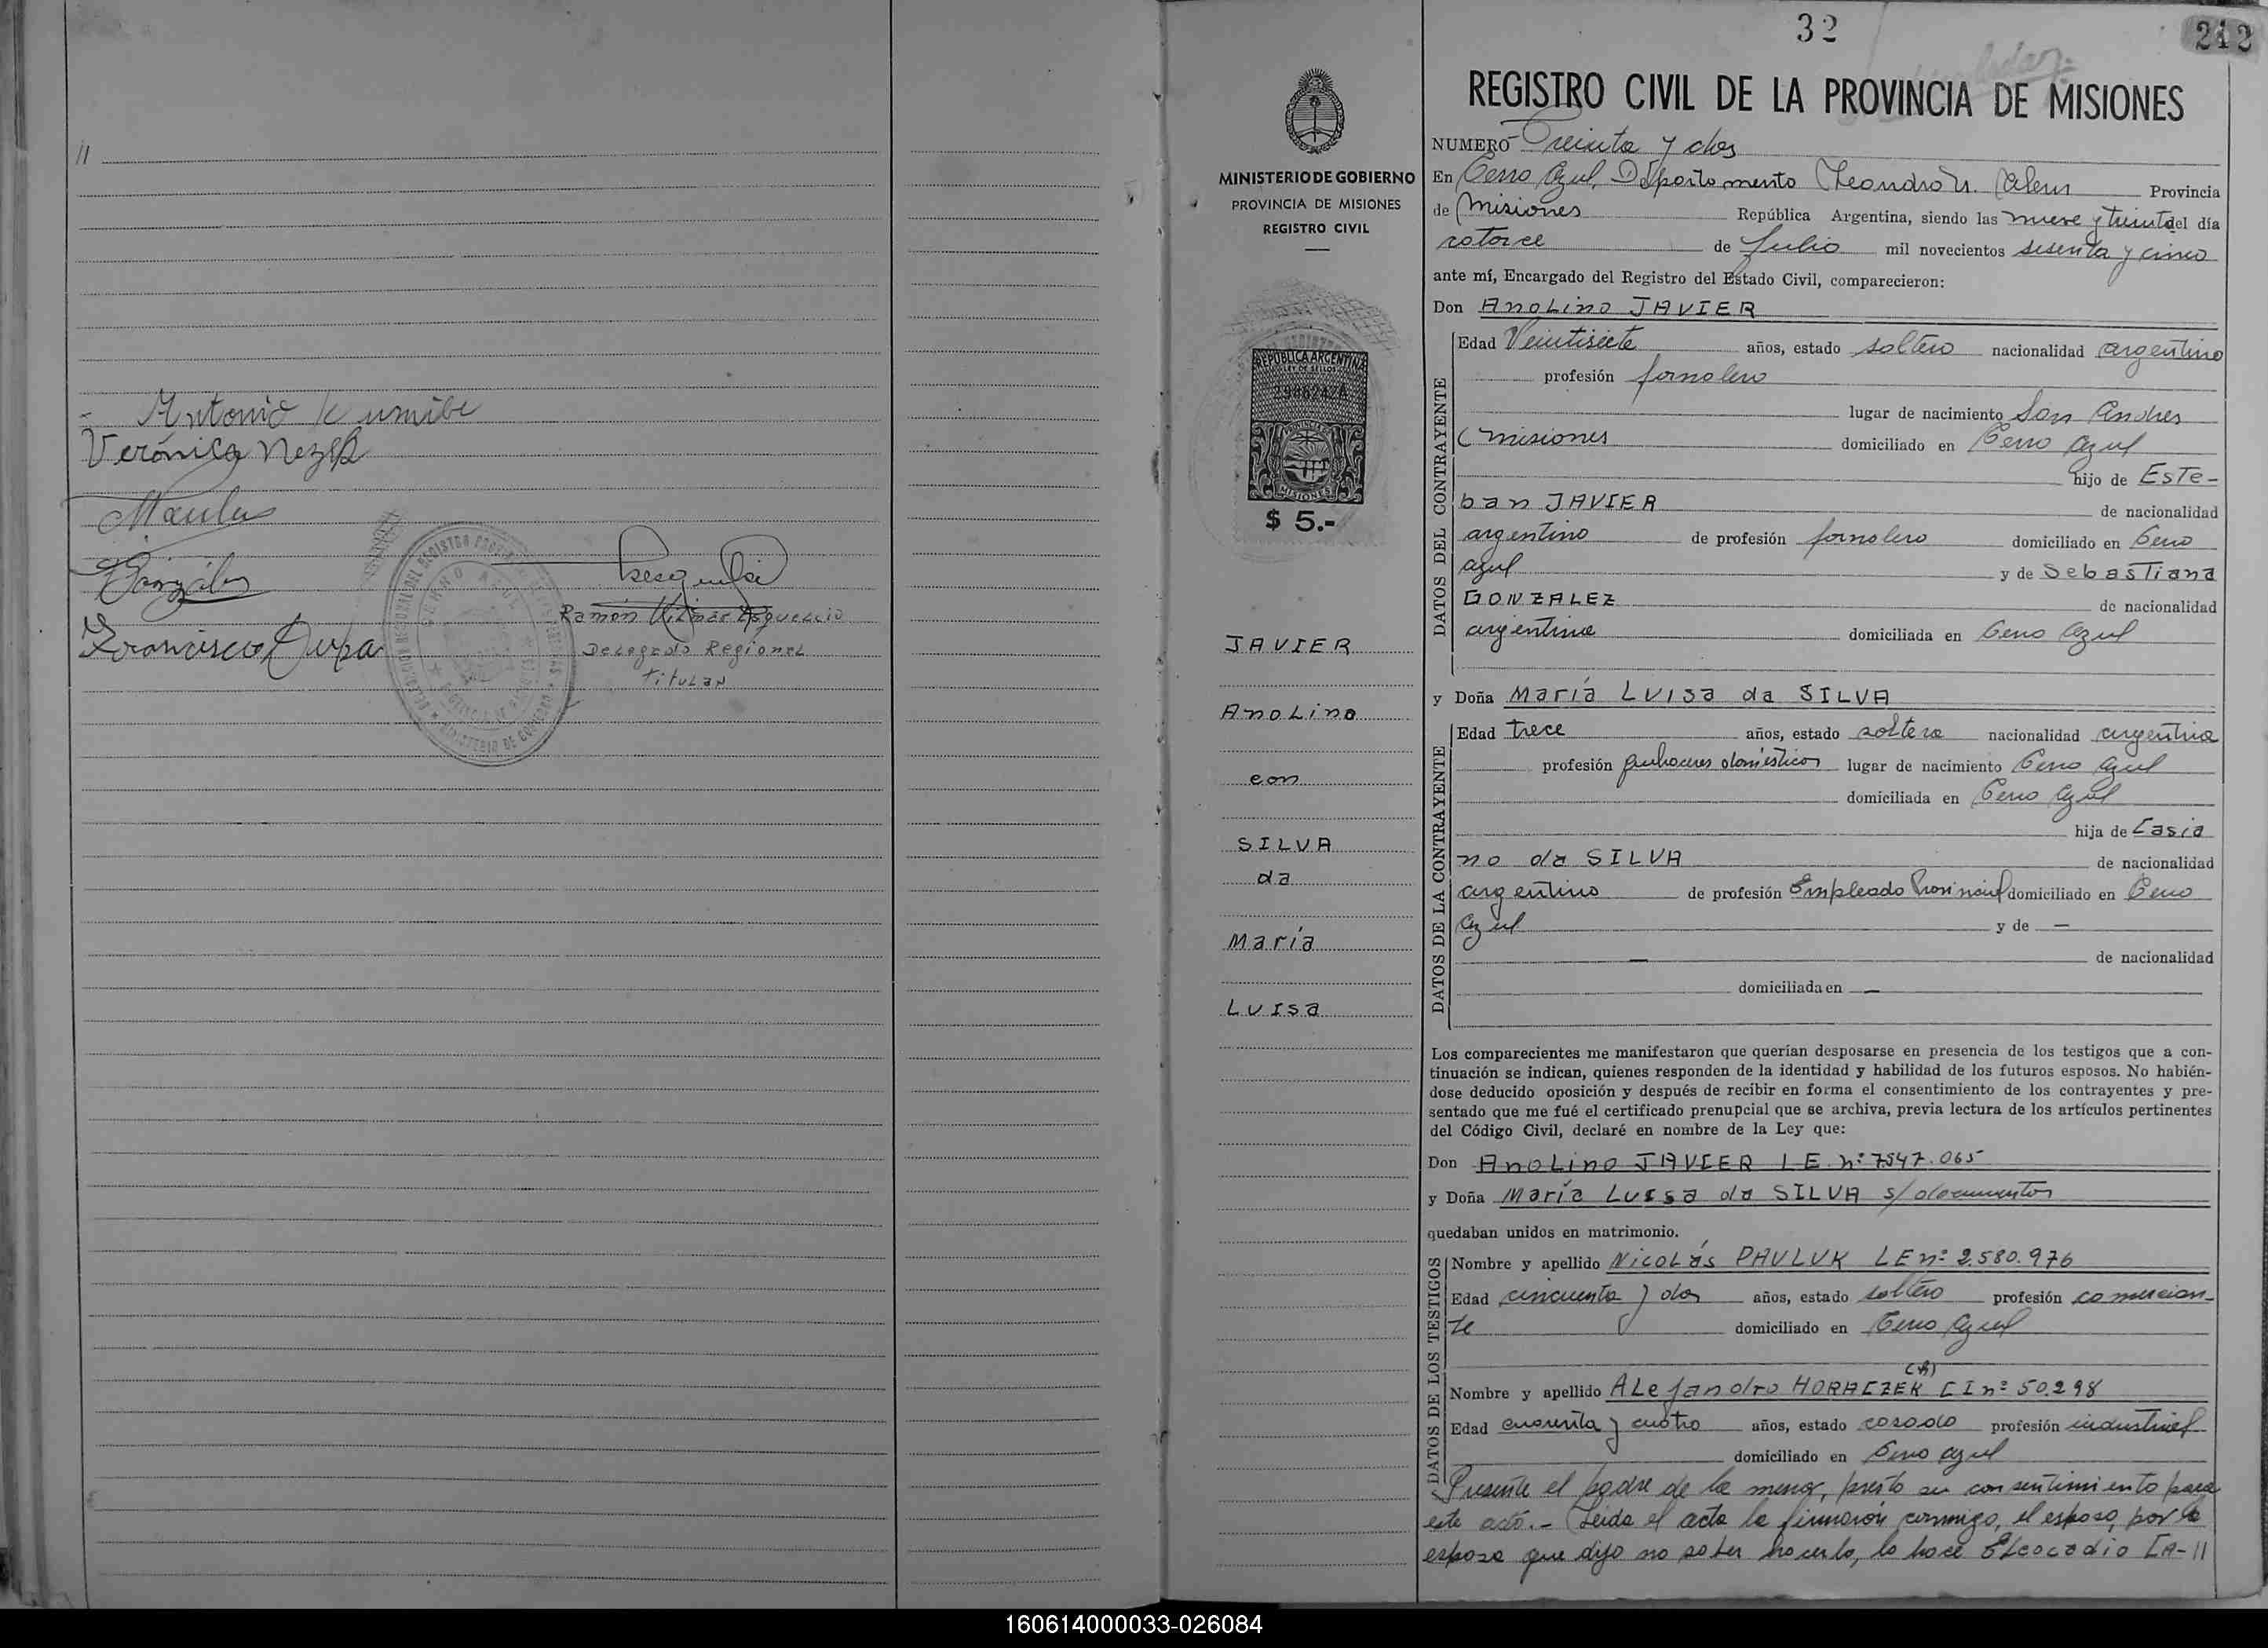 //
Antonio Kumibe
Verónica Nezk
González
Francisco
Ramón
Delegado Regional
Titular
32
212
REGISTRO CIVIL DE LA PROVINCIA DE MISIONES
MINISTERIO DE GOBIERNO
PROVINCIA DE MISIONES
REGISTRO CIVIL
REPUBLICA ARGENTINA
LEY DE SELLOS
MISIONES
$ 5.-
JAVIER
Anolino
con
SILVA
da
María
Luisa
NUMERO Treinta y dos
En Cerro Azul, Departamento Leandro N. Alem Provincia
de Misiones República Argentina, siendo las nueve y treinta del día
catorce de Julio mil novecientos sesenta y cinco
ante mí, Encargado del Registro del Estado Civil, comparecieron:
Don Anolino JAVIER
DATOS DEL CONTRAYENTE
Edad Veintisiete años, estado soltero nacionalidad argentino
profesión jornalero
lugar de nacimiento San Andres
(Misiones domiciliado en Cerro Azul
hijo de Este-
ban JAVIER de nacionalidad
argentino de profesión jornalero domiciliado en Cerro
Azul y de Sebastiana
GONZALEZ de nacionalidad
argentina domiciliada en Cerro Azul
y Doña María Luisa da SILVA
DATOS DE LA CONTRAYENTE
Edad trece años, estado soltera nacionalidad argentina
profesión quehaceres domésticos lugar de nacimiento Cerro Azul
domiciliada en Cerro Azul
hija de Casia
no da SILVA de nacionalidad
argentino de profesión Empleado Provincial domiciliado en Cerro
Azul y de —
— de nacionalidad
domiciliada en —
Los comparecientes me manifestaron que querían desposarse en presencia de los testigos que a con-
tinuación se indican, quienes responden de la identidad y habilidad de los futuros esposos. No habién-
dose deducido oposición y después de recibir en forma el consentimiento de los contrayentes y pre-
sentado que me fué el certificado prenupcial que se archiva, previa lectura de los artículos pertinentes
del Código Civil, declaré en nombre de la Ley que:
Don Anolino JAVIER LE. nº 7547.065
y Doña María Luisa da SILVA s/documentos
quedaban unidos en matrimonio.
DATOS DE LOS TESTIGOS
Nombre y apellido Nicolás PAULUK LE nº 2.580.976
Edad cincuenta y dos años, estado soltero profesión comercian-
te domiciliado en Cerro Azul
(A)
Nombre y apellido Alejandro HORACZEK CI nº 50.298
Edad cuarenta y cuatro años, estado casado profesión industrial
domiciliado en Cerro Azul
Presente el padre de la menor, prestó su consentimiento para
este acto.- Leída el acta la firmaron conmigo, el esposo, por la
esposa que dijo no saber hacerlo, lo hace Eleocadio CA-//
160614000033-026084